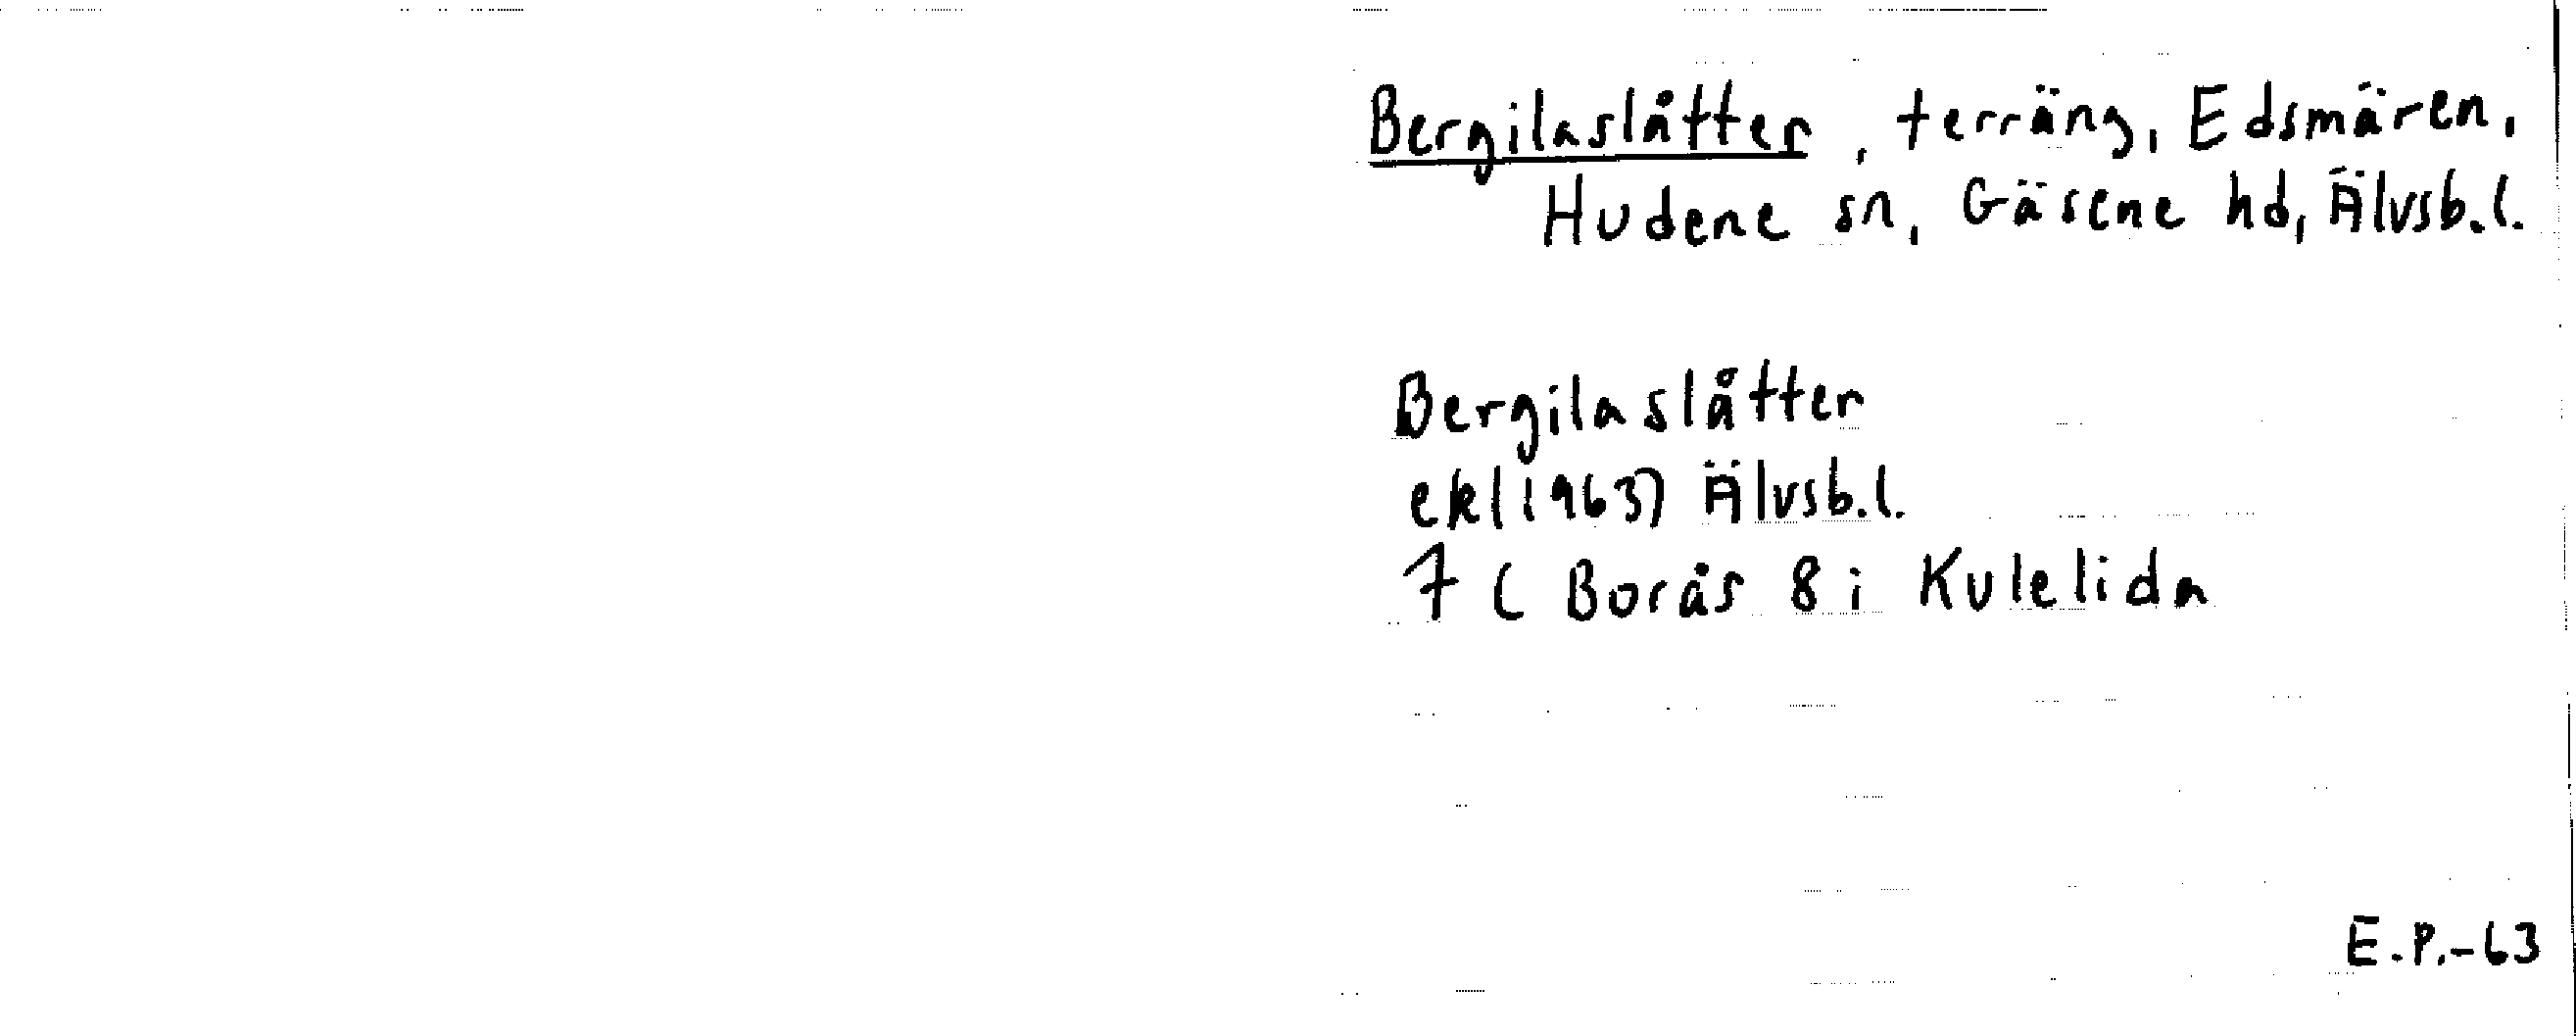 Bergilaslåtter, terräng, Edsmären,
Hudene sn, Gäsene hd, Älvsb.l.
Bergilaslåtter
ek(1963) Älvsb.l.
7 C Borås 8 i Kulelida
E.P.-63